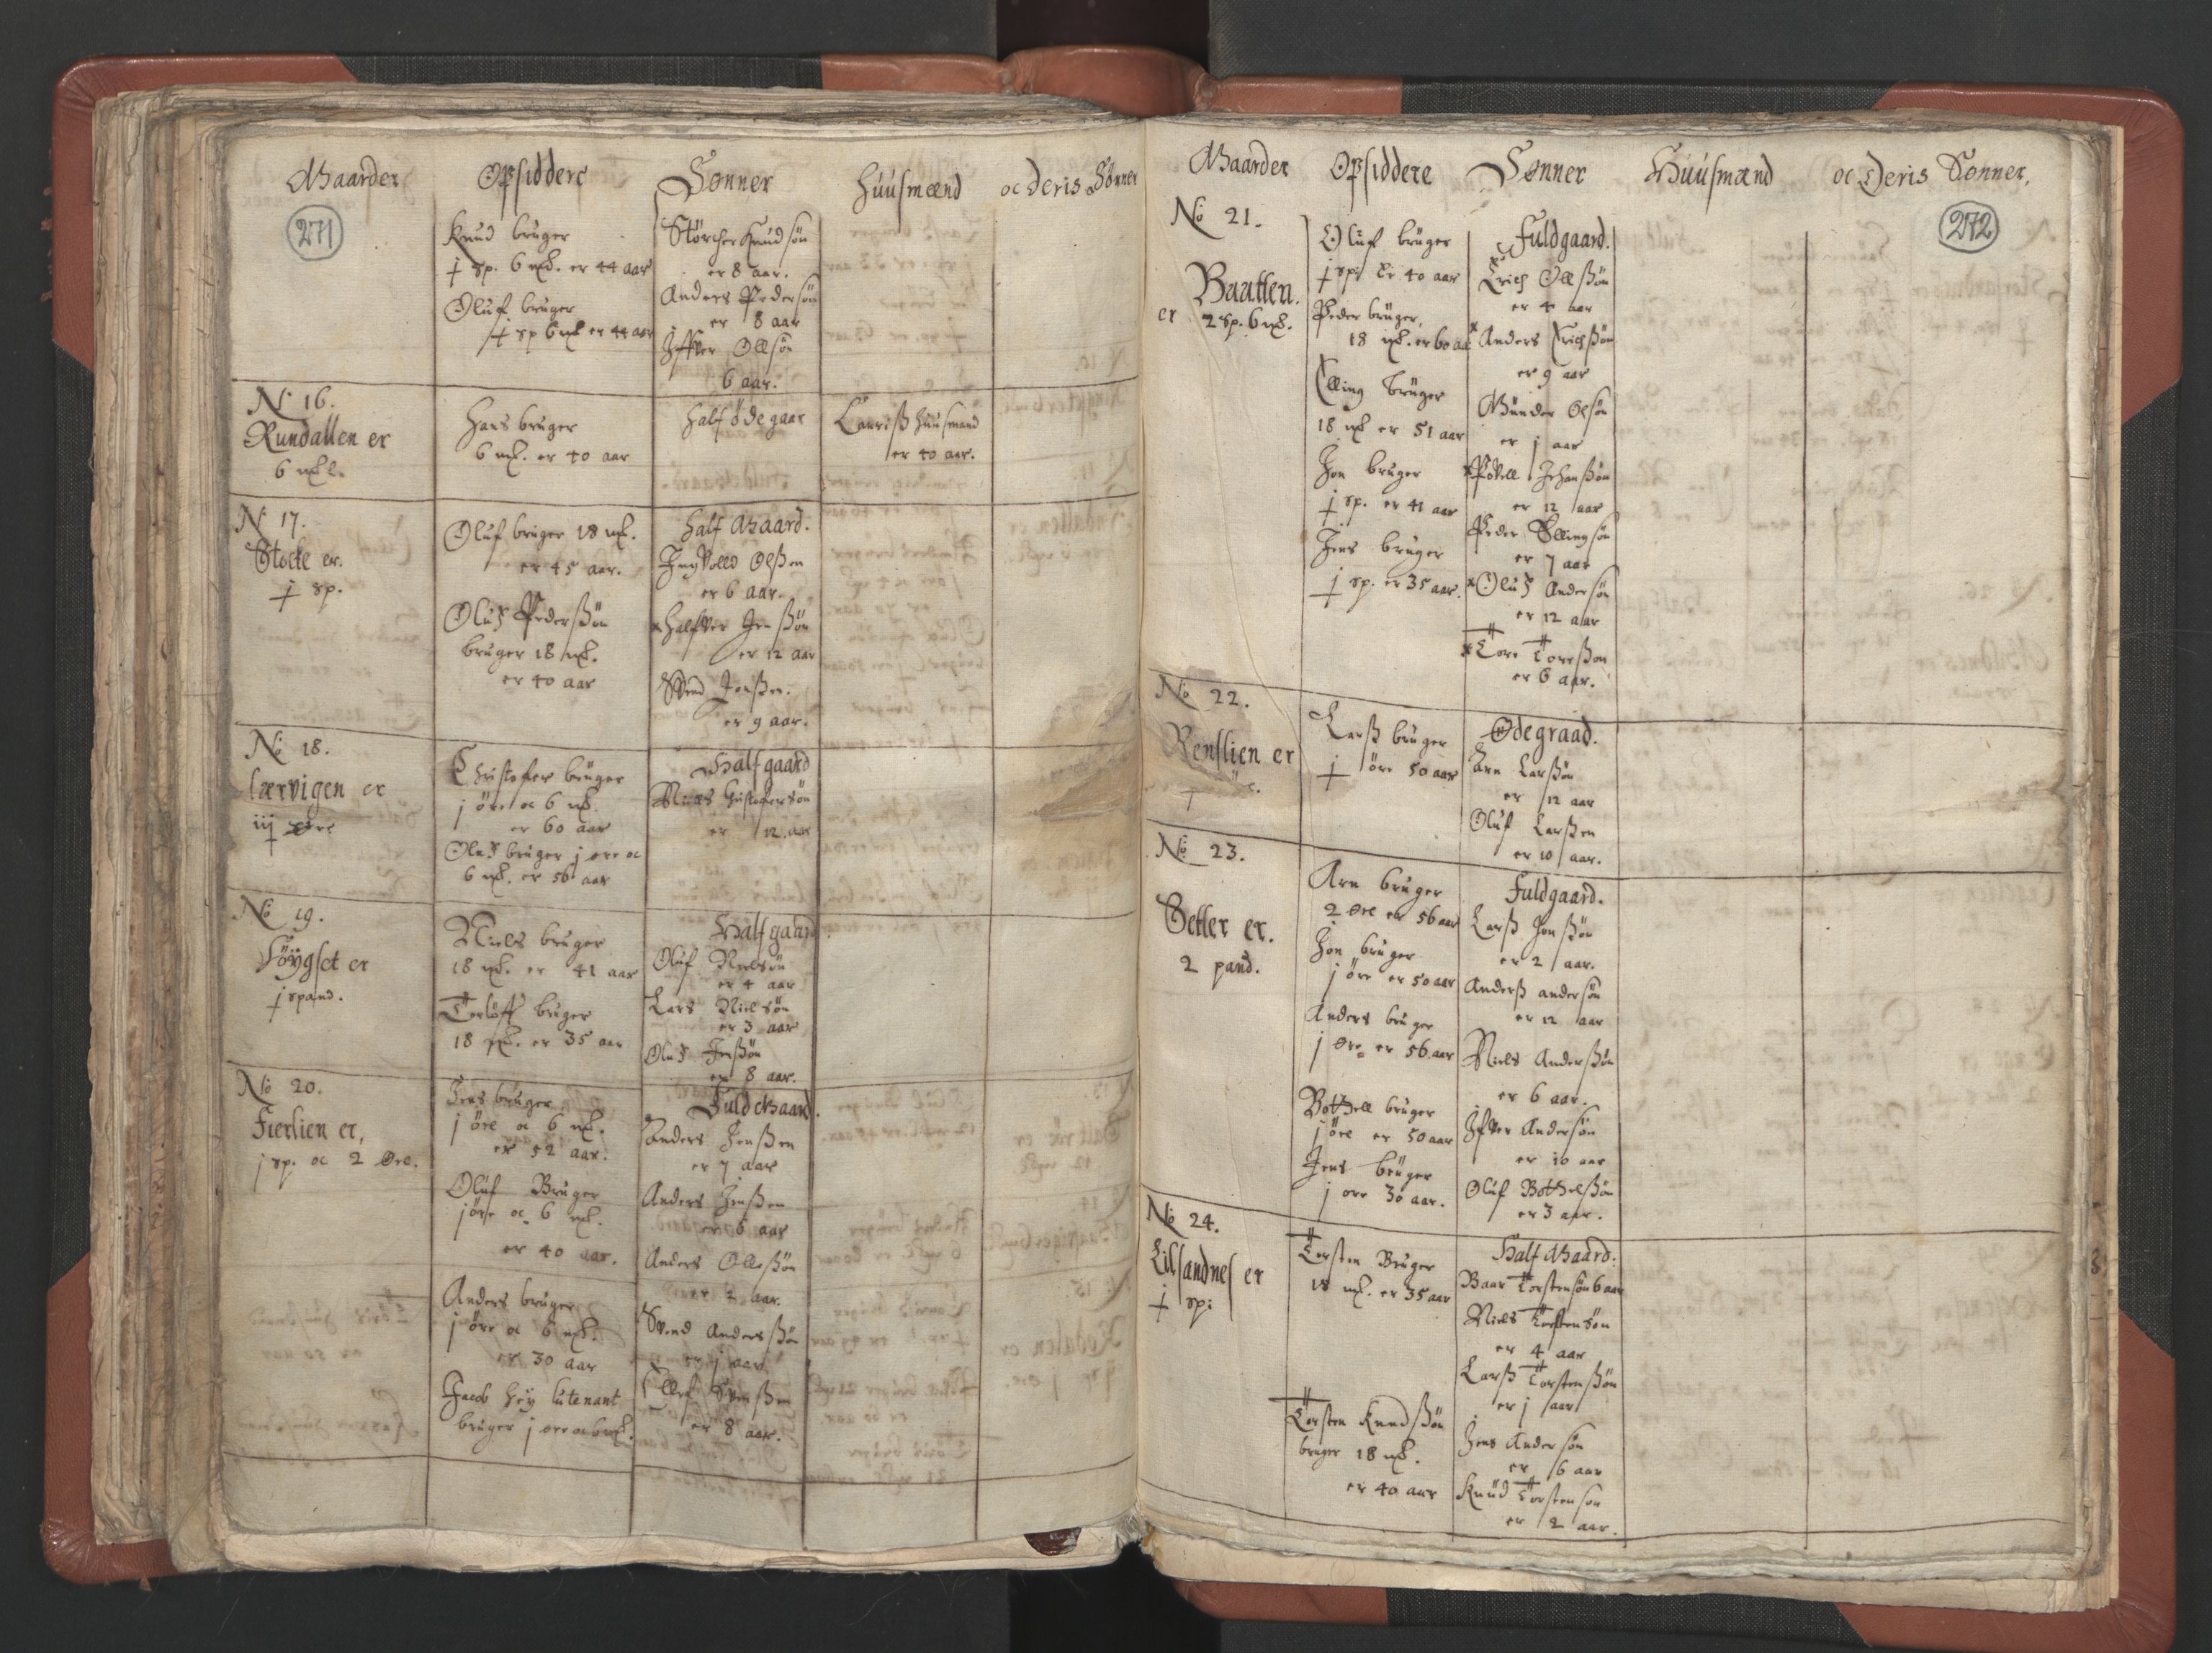 Gaarder Opsiddere Sønner Huusmænd oc Deris Sønner
271
Knud bruger
j sp. 6 mk. er 44 aar
Oluf bruger
j sp 6 mk er 44 aar
Størcher Knudsøn
er 8 aar.
Anders Pedersøn
er 8 aar
Iffver Ollsøn
6 aar.
No 16.
Rundallen er
6 mkl.
Hans bruger
6 mk. er 40 aar
Half ødegaar
Lauriß huusmand
er 40 aar.
No 17.
Stocke er.
j sp.
Oluf bruger 18 mk.
er 45 aar.
Oluf Pederßøn
bruger 18 mk.
er 40 aar
Half Gaard.
Olßen
er 6 aar.
er 12 aar
Svend Jenßen.
er 9 aar.
No 18.
Lærvigen er
iij øre
Christofer bruger
j øre oc 6 mk.
er 60 aar
Oluf bruger j øre oc
6 mk. er 56 aar
Half gaard
Niels Christofersøn
er 12 aar
No 19.
Føygset er
j spand.
Niels bruger
18 mk. er 41 aar
Torløff bruger
18 mk. er 35 aar
Half gaard.
Oluf Nielsøn
er 4 aar
Lars Nielsøn
er 3 aar
Oluf Jenßøn
er 8 aar.
No 20.
Fierlien er,
j sp. oc 2 Øre.
Jens bruger
j øre oc 6 mk.
er 52 aar.
Oluf Bruger
j øre oc 6 mk.
er 40 aar.
Anders bruger
j øre oc 6 mk.
er 30 aar
Jacob Hey lutenant
bruger j øre oc 6 mk.
Fuld Gaard.
Anders Jenßen
er 7 aar
Anders Jenßen
er 6 aar
Anders Olleßøn
er 2 aar.
Svend Andersßøn
er j aar
Ellef Svenßøn
er 8 aar.
Gaarder Opsiddere Sønner Huusmænd oc Deris Sønner,
272
No 21.
Baatten.
er 2 sp. 6 mk.
Oluf bruger
j sp: er 40 aar
Peder bruger,
18 mk. er 60 aar
Elling bruger
18 mk er 51 aar
Jon bruger
j sp. er 41 aar
Jens bruger
j sp. er 35 aar.
Fuldgaard.
x Erich Ollßøn
er 4 aar
x Anders Erichßøn
er 9 aar
Gunder Olsøn
er j aar
x Povell Johanßøn
er 12 aar
Peder Ellingsøn
er 7 aar
x Oluf Andersøn
er 12 aar
x Tore Toreßøn
er 6 aar.
No 22.
Renslien er
j
Larß bruger
j øre 50 aar
Ødegraad.
Arn Larßøn
er 12 aar
Oluf Larßen
er 10 aar.
No 23.
Setter er.
2 pand.
Arn bruger
2 øre er 56 aar
Jon bruger
j øre er 50 aar
Anders bruger
j øre er 56 aar
Bottell bruger
j øre er 50 aar
Jens bruger
j øre 30 aar.
Fuldgaard.
Larß Jonßøn
er 2 aar.
Anderß andersøn
er 12 aar
Niels Anderßøn
er 6 aar.
Ifver Andersøn
er 10 aar
Oluf Bottelßøn
er 3 aar.
No 24.
Lillsandnes er
j sp:
Torsten Bruger
18 mk. er 35 aar
Torsten Knudßøn
bruger 18 mk.
er 40 aar
Half Gaard.
Baar Torstensøn 6 aar
Niels Torstensøn
er 4 aar
Larß Torstenßøn
er j aar
Jens Andersøn
er 6 aar
Knud Torstensøn
er 2 aar.